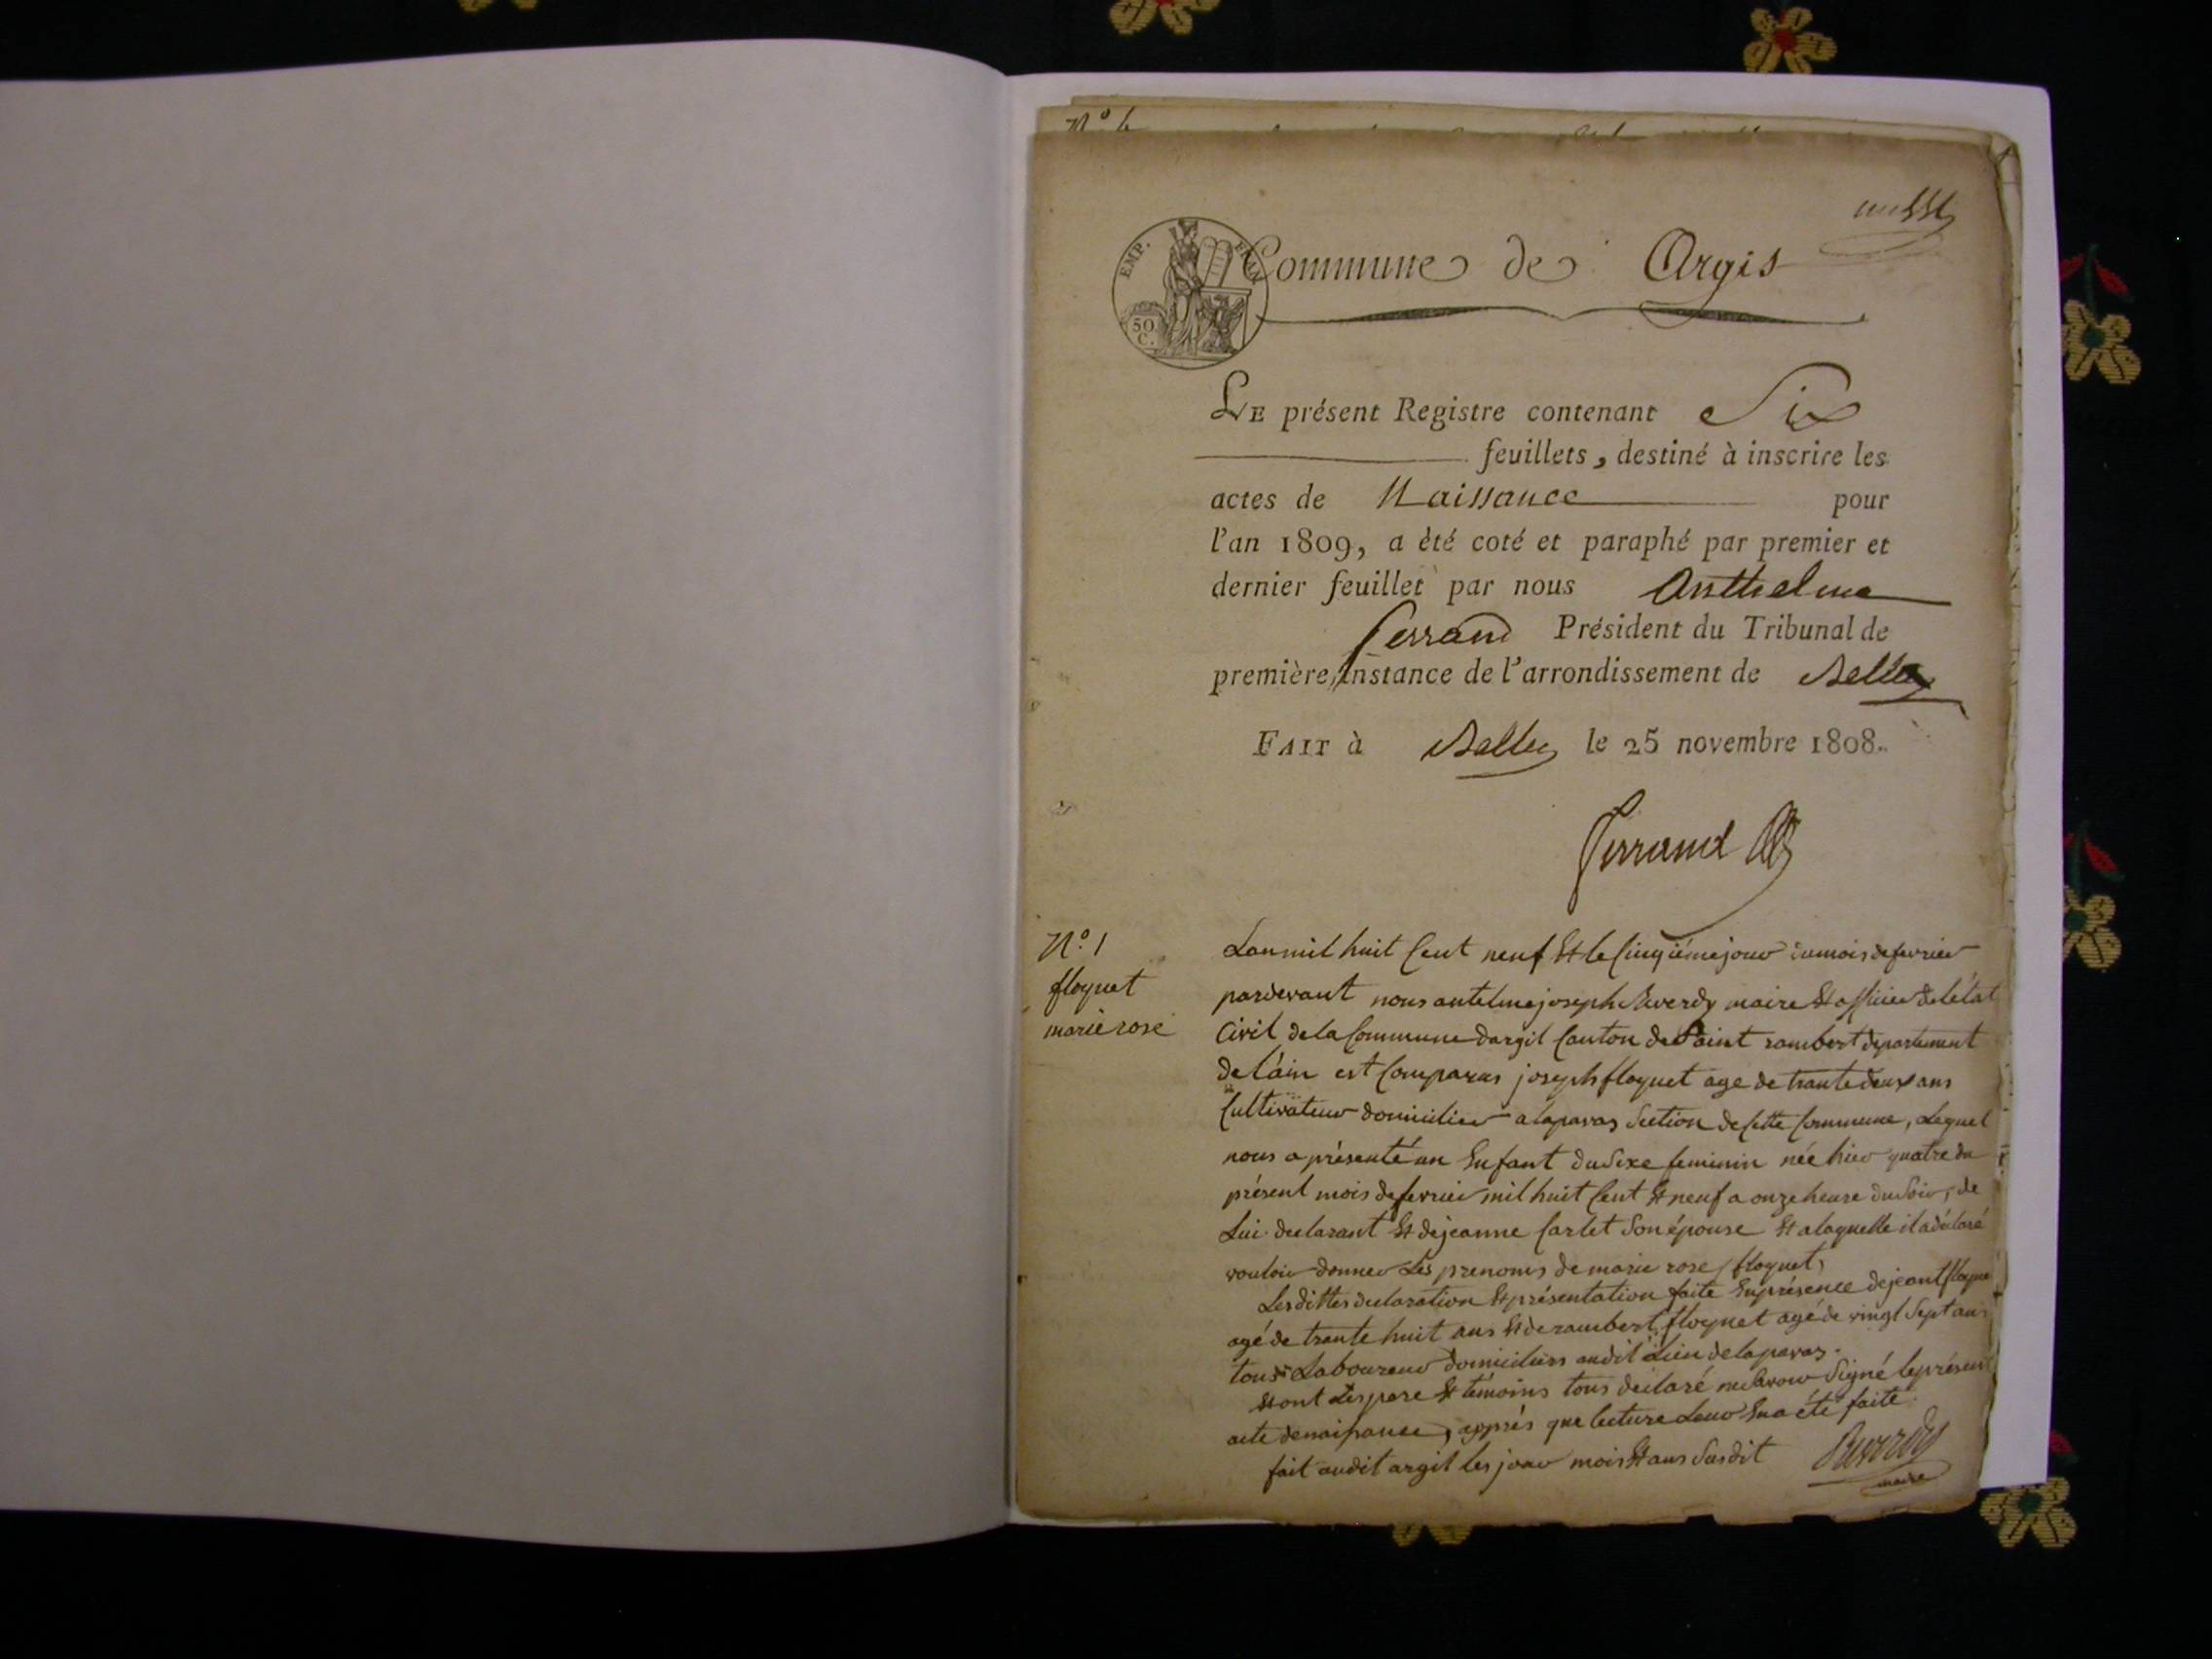 N.º 6
EMP. FRAN.
50 C.
Commune de Argis
LE présent Registre contenant Six
feuillets, destiné à inscrire les
actes de Naissance pour
l'an 1809, a été coté et paraphé par premier et
dernier feuillet par nous Anthelme
ferrand Président du Tribunal de
première instance de l'arrondissement de Belley
FAIT à Belley le 25 novembre 1808.
ferrand
N.º 1
floquet
marie rose
Lan mil huit Cent neuf Et le Cinqiéme jour du mois defevrier
pardevant nous antelme joseph maire Et officier de létat
Civil de la Commune dargil Canton de Saint rambert departement
de láin est Comparus joseph floquet age de trante deux ans
Cultivateur domicilier alaparas Section de Cette Commune, Lequel
nous a présenté un Enfant du Sexe feminin née hier quatre du
présent mois defevrier mil huit Cent Et neuf a onze heure du Soir, de
Lui declarant Et dejeanne Carlet Son épouse Et alaquelle il a déclaré
vouloir donner Les prenoms de marie rose floquet,
Lesdittes declaration Et présentation faite En présence dejeant floque
agé de trante huit ans Et de rambert floquet agé de vingt Sept ans
tous Laboureur domiciliers audit Lieu delaparas.
Et ont Les pere Et témoins tous declaré ne Savoir Signé le présent
acte denaissance, apprés que lecture Leur En a été faite
fait audit argil les jour mois Et ans Susdit
maire